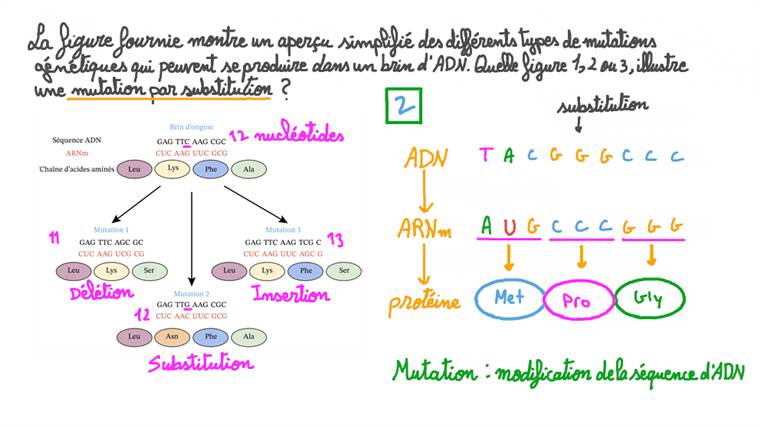 La figure fournie montre un aperçu simplifié des différents types de mutations
génétiques qui peuvent se produire dans un brin d'ADN. Quelle figure 1, 2 ou 3, illustre
une mutation par substitution ?
Brin d'origine
Séquence ADN GAG TTC AAG CGC 12 nucléotides
ARNm CUC AAG UUC GCG
Chaîne d'acides aminés Leu Lys Phe Ala
Mutation 1
11 GAG TTC AGC GC
CUC AAG UCG CG
Leu Lys Ser
Délétion
Mutation 3
GAG TTC AAG TCG C 13
CUC AAG UUC AGC G
Leu Lys Phe Ser
Insertion
Mutation 2
12 GAG TTG AAG CGC
CUC AAC UUC GCG
Leu Asn Phe Ala
Substitution
2
substitution
ADN T A C G G G C C C
ARNm A U G C C C G G G
protéine Met Pro Gly
Mutation : modification de la séquence d'ADN